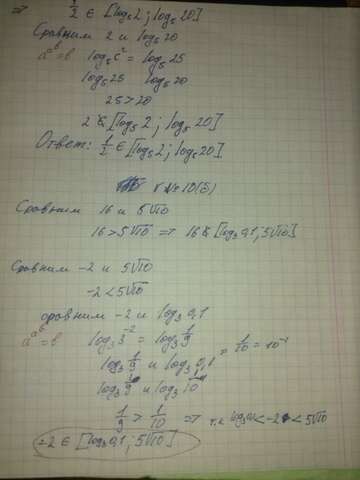 ⇒ 1/2 ∈ [log₅2 ; log₅20]
Сравним 2 и log₅20
log₅5² = log₅25
log₅25 log₅20
25 > 20
2 ∉ [log₅2 ; log₅20]
Ответ: 1/2 ∈ [log₅2 ; log₅20]
№10(б)
Сравним 16 и 5√10
16 > 5√10 ⇒ 16 ∉ [log₃0,1 ; 5√10]
Сравним -2 и 5√10
-2 < 5√10
сравним -2 и log₃0,1
log₃3⁻² = log₃1/9
log₃1/9 и log₃0,1 = 1/10 = 10⁻¹
log₃1/9 и log₃10⁻¹
1/9 > 1/10 ⇒ т.к log₃0,1 < -2 < 5√10
-2 ∈ [log₃0,1 ; 5√10]